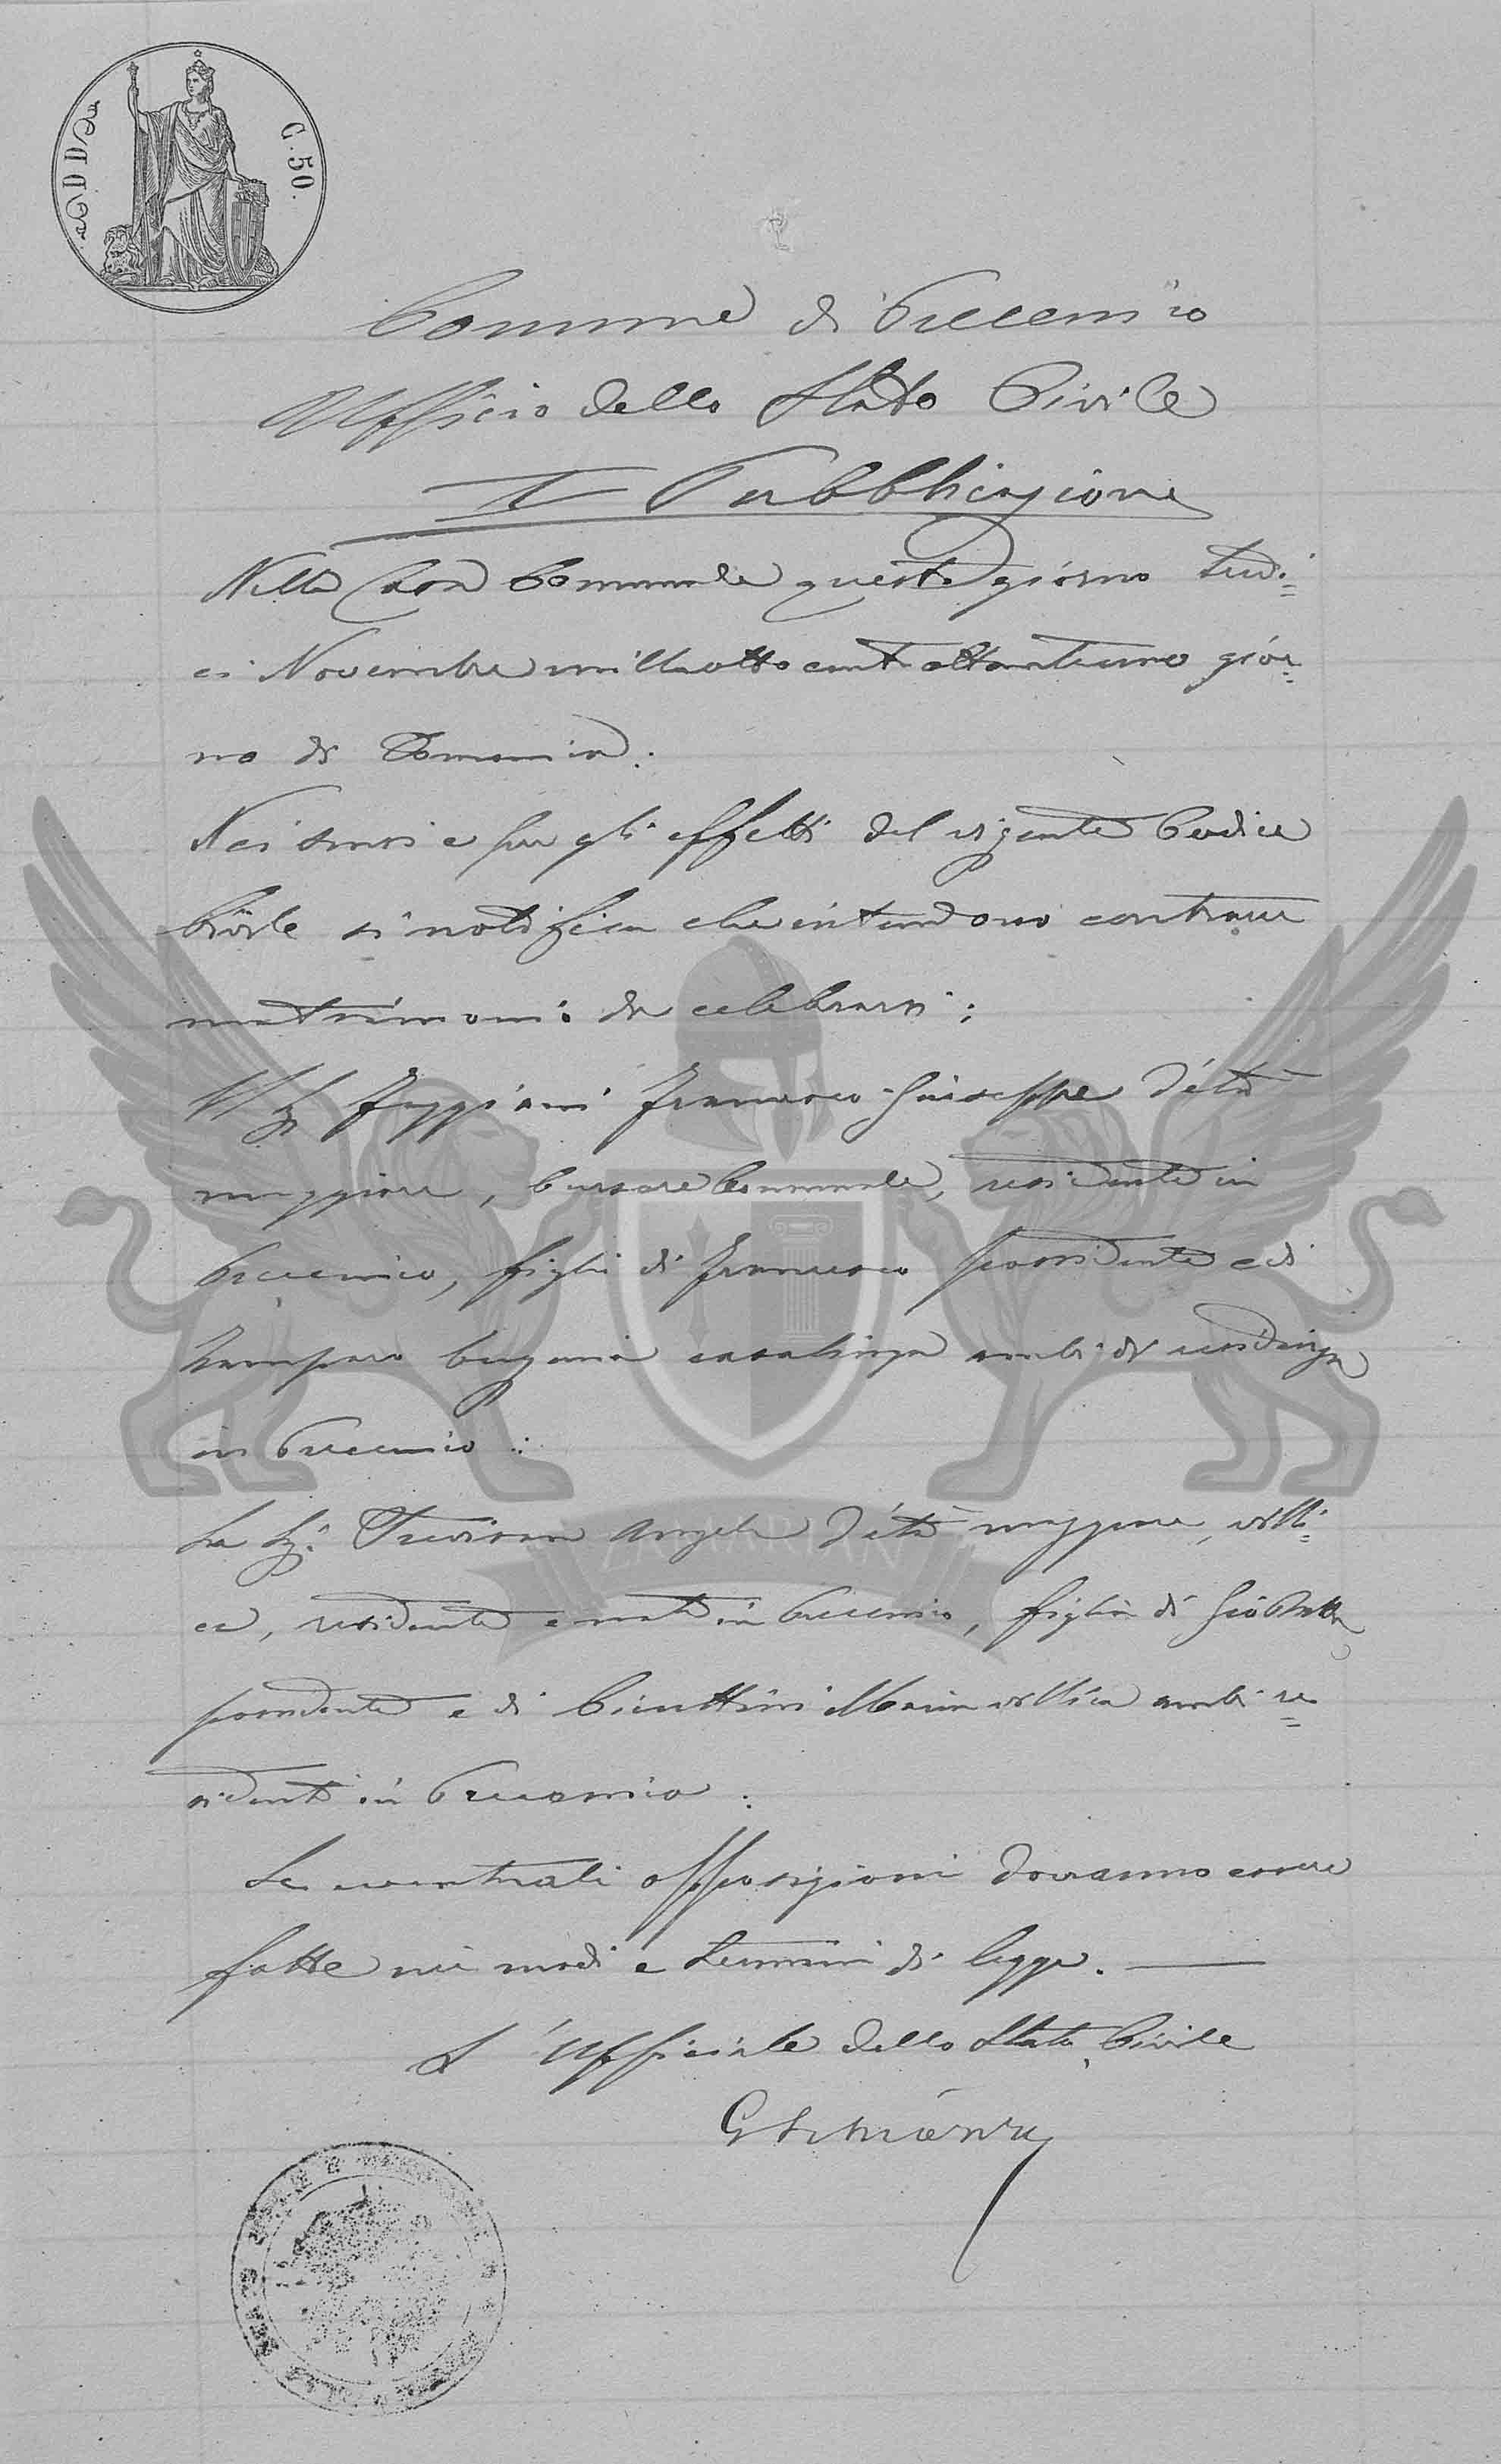 C. 50.
Comune di Precenico
Ufficio dello Stato Civile
I Pubblicazione
Nella Casa Comunale questo giorno tredi=
ci Novembre milleottocentottantuno gior=
no di Domenica.
Nei sensi e per gli effetti del vigente Codice
Civile si notifica che intendono contrarre
matrimonio da celebrarsi:
Il Sig Faggiani Francesco Giuseppe d'età
maggiore, Cursore Comunale, residente in
Precenico, figlio di Francesco possidente e di
Zamparo Eugenia casalinga ambi di residenza
in Precenico:
La Sig. Trevisan Angela d'età maggiore, villi=
ca, residente e nata in Precenico, figlia di Gio Batta
possidente e di Cicuttini Maria villica ambi re=
sidenti in Precenico.
Le eventuali opposizioni dovranno essere
fatte nei modi e termini di legge.
L'Ufficiale dello Stato Civile